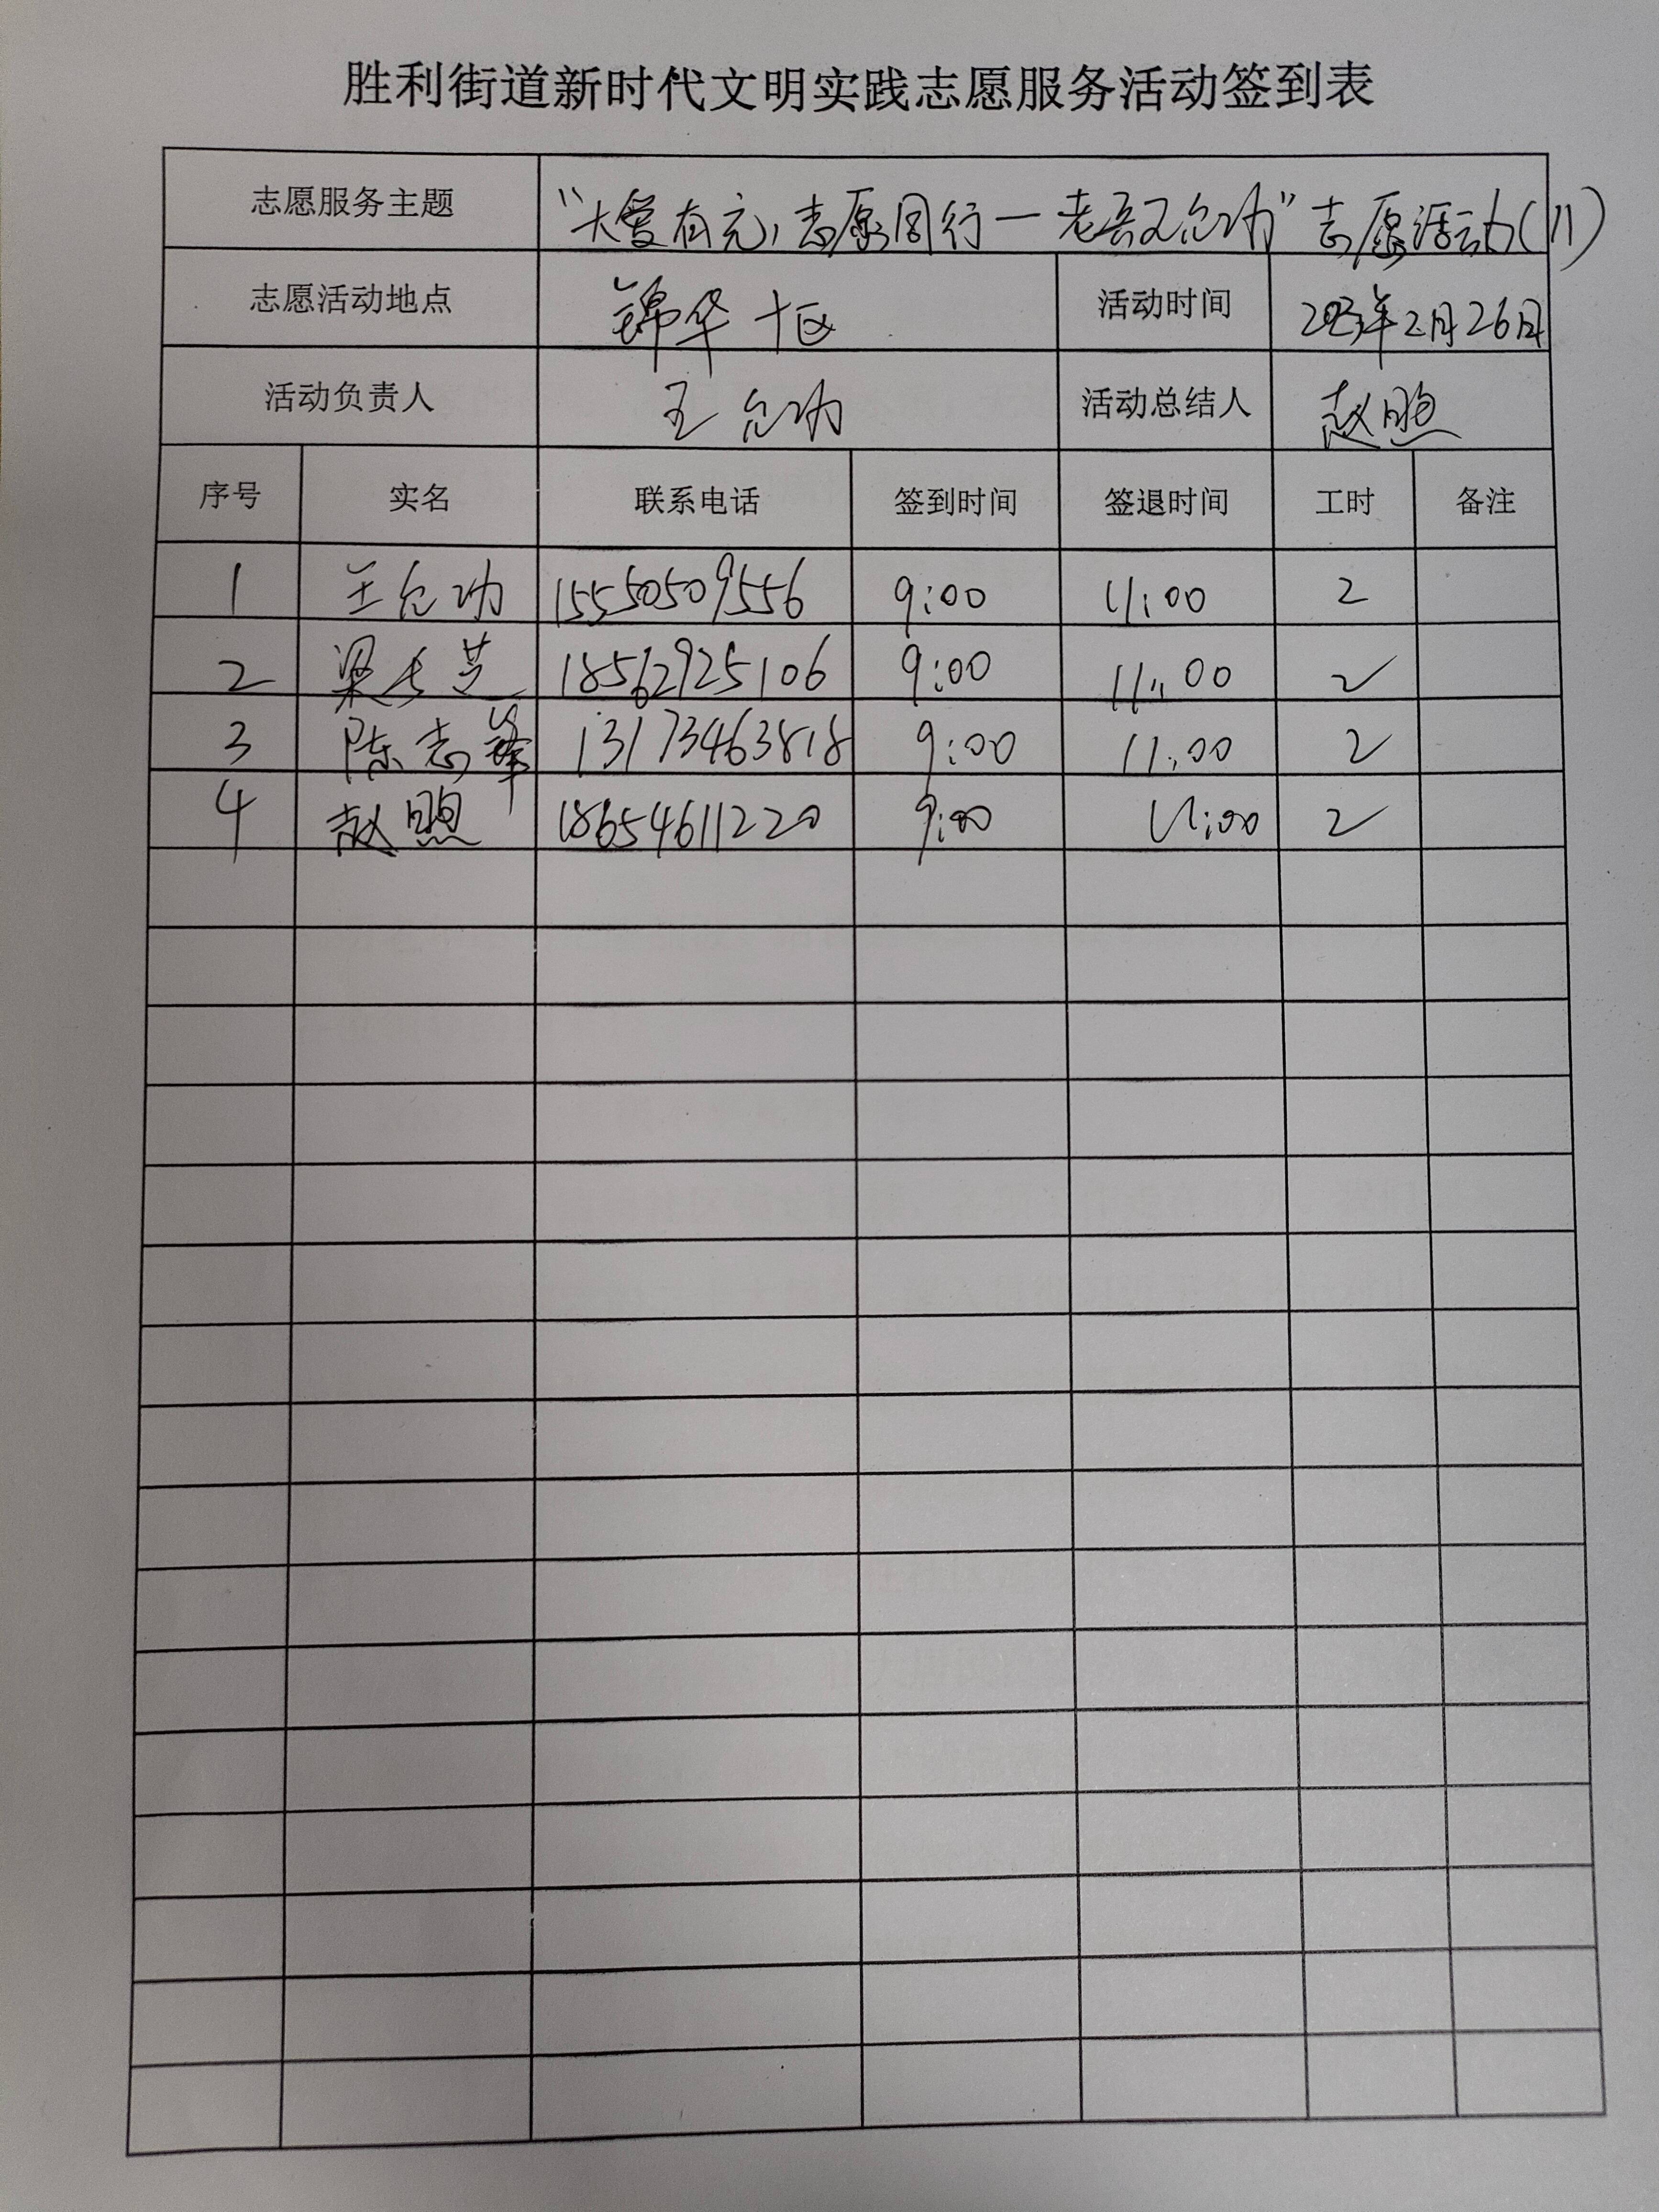 胜利街道新时代文明实践志愿服务活动签到表
志愿服务主题 “大爱有充,志愿同行一老吾又允功”志愿活动(11)
志愿活动地点 锦华十区 活动时间 2023年2月26日
活动负责人 王允功 活动总结人 赵照
序号 实名 联系电话 签到时间 签退时间 工时 备注
1 王允功 15550509556 9:00 11:00 2
2 梁长芝 18562925106 9:00 11:00 2
3 陈志锋 13173463818 9:00 11:00 2
4 赵照 18654611220 9:00 11:00 2